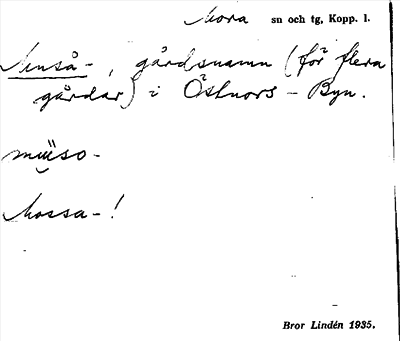 Mora sn och tg, Kopp. l.
Muså-, gårdsnamn (för flera
gårdar) i Östnors-Byn.
Mossa-!
Bror Lindén 1935.